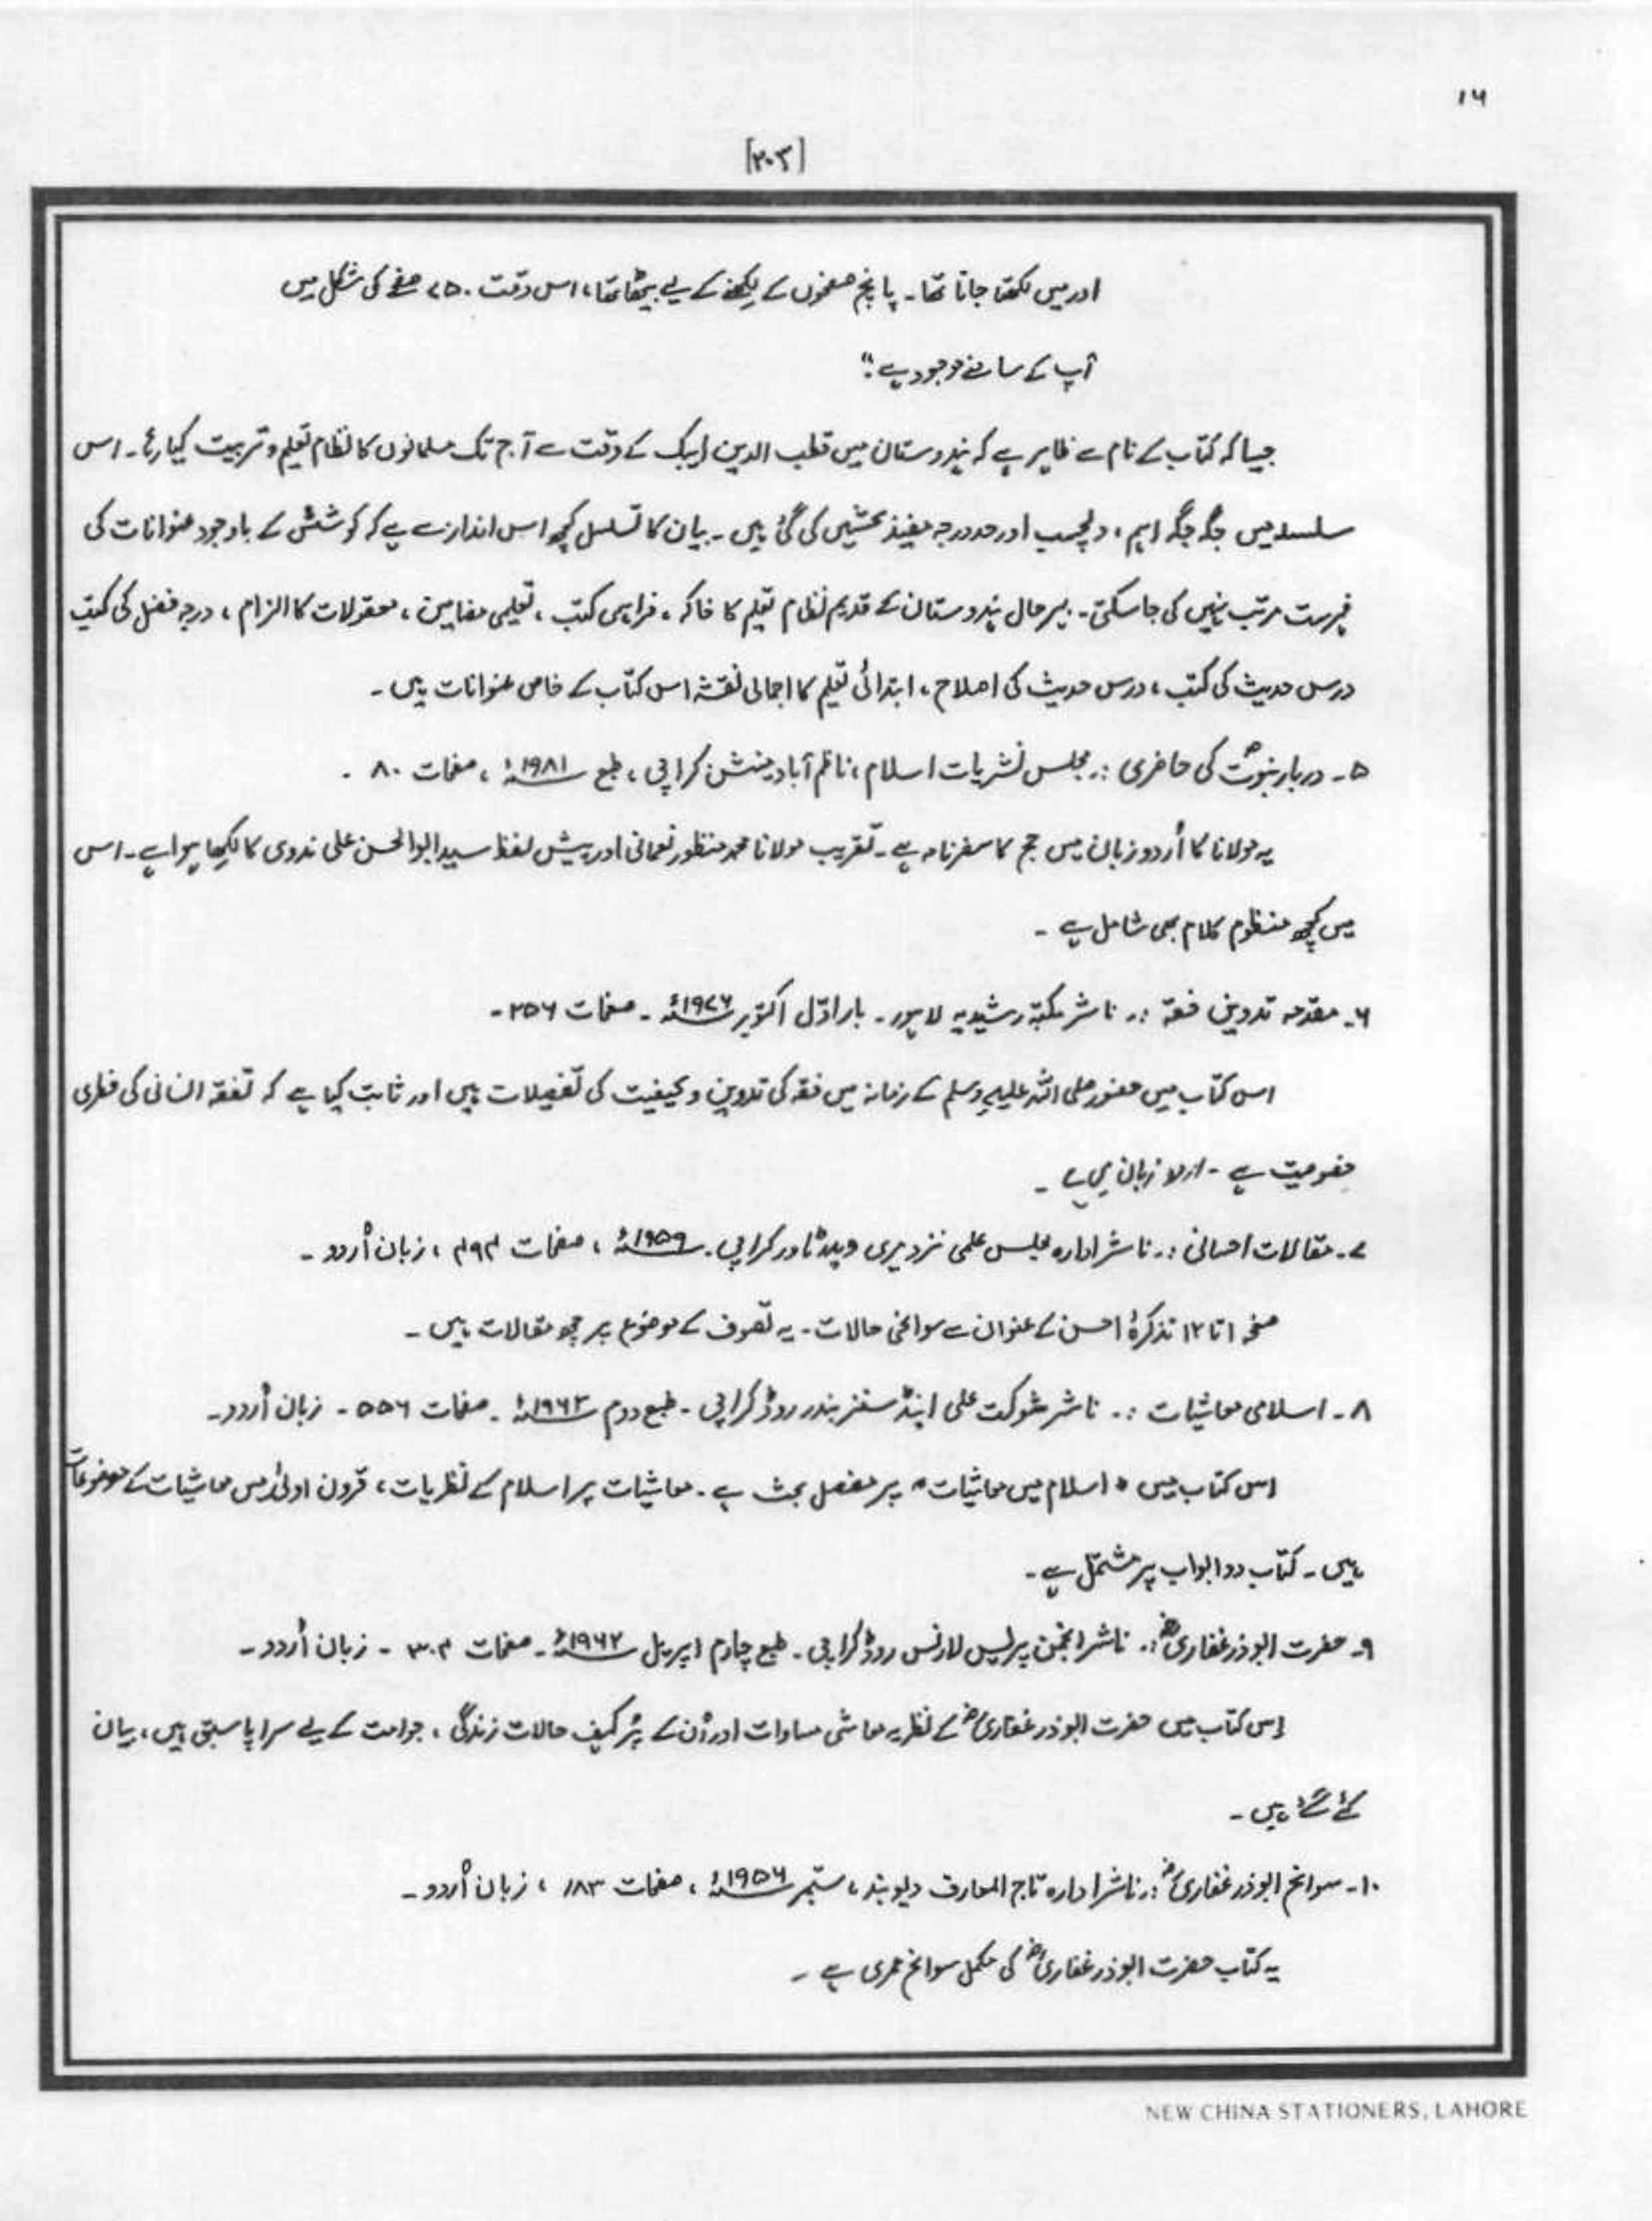 ۱۶
[۲۰۳]
اور میں لکھتا جاتا تھا۔ پانچ صفحوں کے لکھنے کے لیے بیٹھا تھا، اس وقت ۷۵۰ صفحے کی شکل میں
آپ کے سامنے موجود ہے"
جیسا کہ کتاب کے نام سے ظاہر ہے کہ ہندوستان میں قطب الدین ایبک کے وقت سے آج تک مسلمانوں کا نظام تعلیم و تربیت کیا رہا۔ اس
سلسلہ میں جگہ جگہ اہم، دلچسپ اور حد درجہ مفید بحثیں کی گئی ہیں۔ بیان کا تسلسل کچھ اس انداز سے ہے کہ کوشش کے باوجود عنوانات کی
فہرست مرتب نہیں کی جا سکتی۔ بہر حال ہندوستان کے قدیم نظام تعلیم کا خاکہ، فراہمی کتب، تعلیمی مضامین، معقولات کا الزام، درجہ فضل کی کتب
درس حدیث کی کتب، درس حدیث کی اصلاح، ابتدائی تعلیم کا اجمالی نقشہ اس کتاب کے خاص عنوانات ہیں۔
۵۔ دربار نبوتؐ کی حاضری :۔ مجلس نشریات اسلام، ناظم آباد مینشن کراچی، طبع ۱۹۸۱ء، صفحات ۸۰۔
یہ مولانا کا اُردو زبان میں حج کا سفرنامہ ہے۔ تقریب مولانا محمد منظور نعمانی اور پیش لفظ سید ابوالحسن علی ندوی کا لکھا ہوا ہے۔ اس
میں کچھ منظوم کلام بھی شامل ہے۔
۶۔ مقدمہ تدوین فقہ :۔ ناشر مکتبہ رشیدیہ لاہور۔ بار اوّل اکتوبر ۱۹۷۶ء۔ صفحات ۲۵۶۔
اس کتاب میں حضور صلی اللہ علیہ وسلم کے زمانہ میں فقہ کی تدوین و کیفیت کی تفصیلات ہیں اور ثابت کیا ہے کہ تفقہ انسانی کی فطری
خصوصیت ہے۔ اردو زبان میں ہے۔
۷۔ مقالات احسانی :۔ ناشر ادارہ مجلس علمی نزد میری ویدر ٹاور کراچی۔ ۱۹۵۹ء، صفحات ۴۹۴، زبان اُردو۔
صفحہ ۱ تا ۱۲ تذکرۂ احسن کے عنوان سے سوانحی حالات۔ یہ تصوف کے موضوع پر چھ مقالات ہیں۔
۸۔ اسلامی معاشیات :۔ ناشر شوکت علی اینڈ سنز بندر روڈ کراچی۔ طبع دوم ۱۹۶۳ء۔ صفحات ۵۵۶۔ زبان اُردو۔
اس کتاب میں "اسلام میں معاشیات" پر مفصل بحث ہے۔ معاشیات پر اسلام کے نظریات، قرون اولیٰ میں معاشیات کے موضوعات
ہیں۔ کتاب دو ابواب پر مشتمل ہے۔
۹۔ حضرت ابوذر غفاریؓ :۔ ناشر انجمن پریس لارنس روڈ کراچی۔ طبع چہارم اپریل ۱۹۶۲ء۔ صفحات ۳۰۴۔ زبان اُردو۔
اِس کتاب میں حضرت ابوذر غفاریؓ کے نظریہ معاشی مساوات اور اُن کے پُر کیف حالات زندگی، جو امت کے لیے سراپا سبق ہیں، بیان
کئے گئے ہیں۔
۱۰۔ سوانح ابوذر غفاریؓ :۔ ناشر ادارہ تاج المعارف دیوبند، ستمبر ۱۹۵۶ء، صفحات ۱۸۳، زبان اُردو۔
یہ کتاب حضرت ابوذر غفاریؓ کی مکمل سوانح عمری ہے۔
NEW CHINA STATIONERS, LAHORE